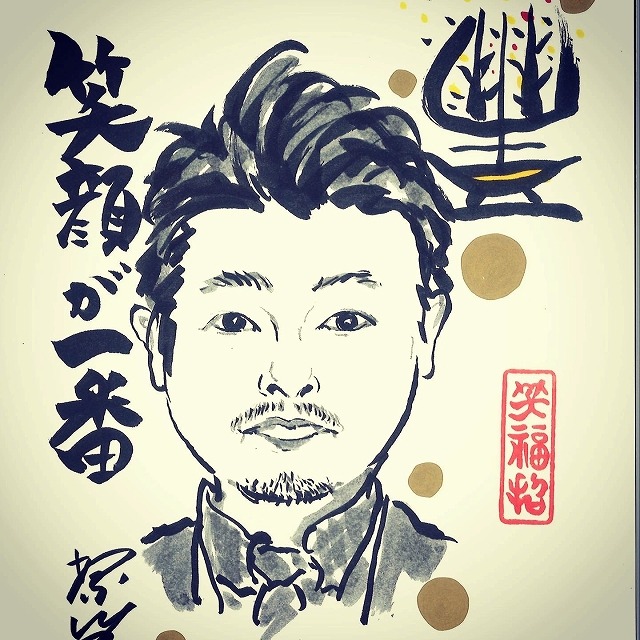 豊
笑顔が一番
笑福招